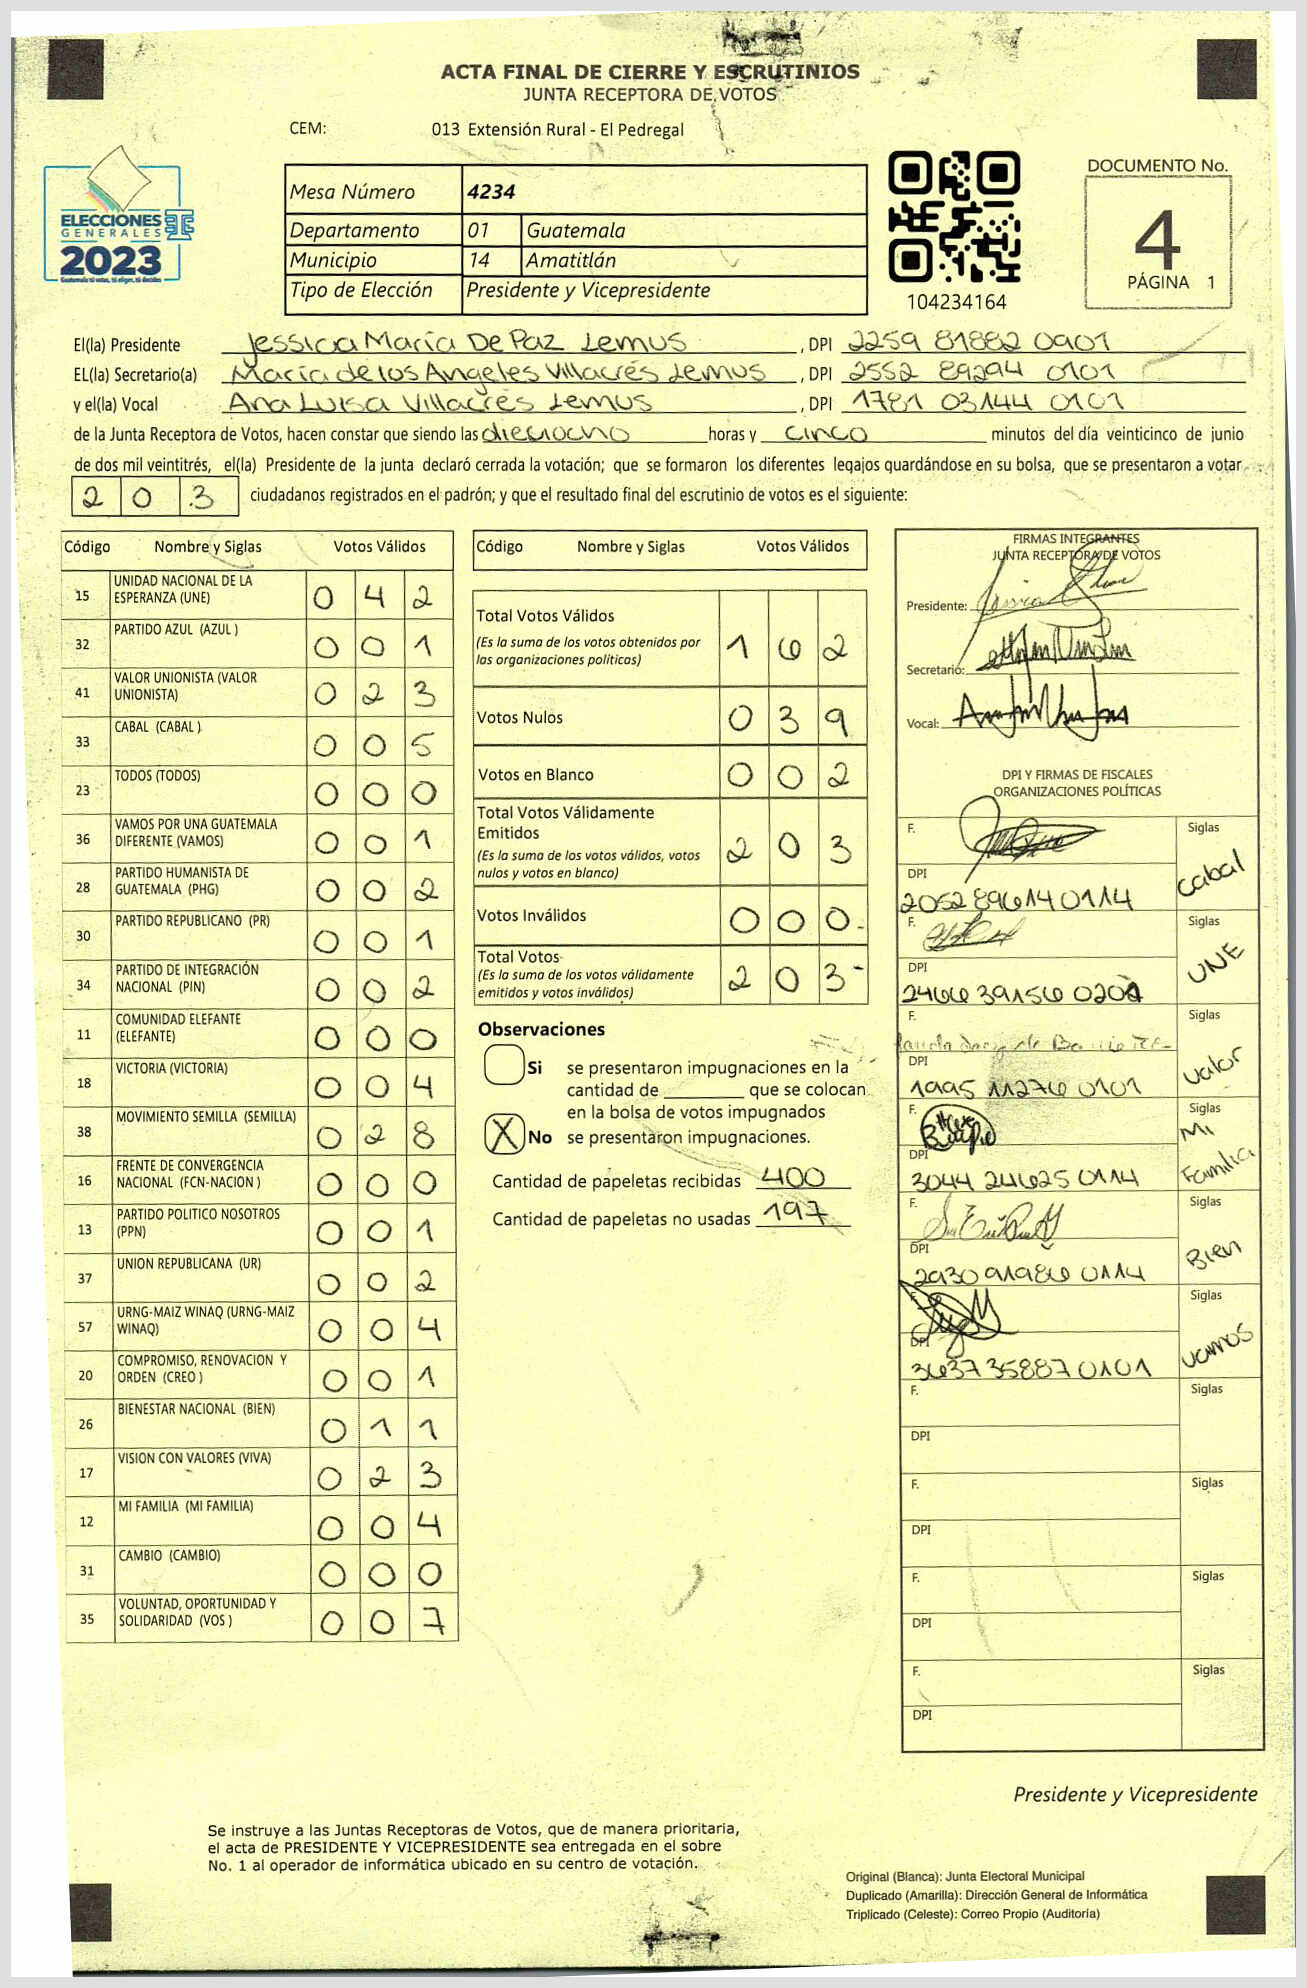 ACTA FINAL DE CIERRE Y ESCRUTINIOS
JUNTA RECEPTORA DE VOTOS
CEM: 013 Extensión Rural - El Pedregal
ELECCIONES
GENERALES
2023
Guatemala tú votas, tú eliges, tú decides
Mesa Número 4234
Departamento 01 Guatemala
Municipio 14 Amatitlán
Tipo de Elección Presidente y Vicepresidente
104234164
DOCUMENTO No.
4
PÁGINA 1
El(la) Presidente Jessica María De Paz Lemus, DPI 2259 81882 0901
EL(la) Secretario(a) María de los Angeles Villacrés Lemus, DPI 2552 89294 0101
y el(la) Vocal Ana Luisa Villacrés Lemus, DPI 1781 03144 0101
de la Junta Receptora de Votos, hacen constar que siendo las dieciocho horas y cinco minutos del día veinticinco de junio
de dos mil veintitrés, el(la) Presidente de la junta declaró cerrada la votación; que se formaron los diferentes legajos guardándose en su bolsa, que se presentaron a votar
2 0 3 ciudadanos registrados en el padrón; y que el resultado final del escrutinio de votos es el siguiente:
Código Nombre y Siglas Votos Válidos
15 UNIDAD NACIONAL DE LA ESPERANZA (UNE) 0 4 2
32 PARTIDO AZUL (AZUL ) 0 0 1
41 VALOR UNIONISTA (VALOR UNIONISTA) 0 2 3
33 CABAL (CABAL ) 0 0 5
23 TODOS (TODOS) 0 0 0
36 VAMOS POR UNA GUATEMALA DIFERENTE (VAMOS) 0 0 1
28 PARTIDO HUMANISTA DE GUATEMALA (PHG) 0 0 2
30 PARTIDO REPUBLICANO (PR) 0 0 1
34 PARTIDO DE INTEGRACIÓN NACIONAL (PIN) 0 0 2
11 COMUNIDAD ELEFANTE (ELEFANTE) 0 0 0
18 VICTORIA (VICTORIA) 0 0 4
38 MOVIMIENTO SEMILLA (SEMILLA) 0 2 8
16 FRENTE DE CONVERGENCIA NACIONAL (FCN-NACION ) 0 0 0
13 PARTIDO POLITICO NOSOTROS (PPN) 0 0 1
37 UNION REPUBLICANA (UR) 0 0 2
57 URNG-MAIZ WINAQ (URNG-MAIZ WINAQ) 0 0 4
20 COMPROMISO, RENOVACION Y ORDEN (CREO ) 0 0 1
26 BIENESTAR NACIONAL (BIEN) 0 1 1
17 VISION CON VALORES (VIVA) 0 2 3
12 MI FAMILIA (MI FAMILIA) 0 0 4
31 CAMBIO (CAMBIO) 0 0 0
35 VOLUNTAD, OPORTUNIDAD Y SOLIDARIDAD (VOS ) 0 0 7
Código Nombre y Siglas Votos Válidos
Total Votos Válidos 1 6 2
(Es la suma de los votos obtenidos por
las organizaciones políticas)
Votos Nulos 0 3 9
Votos en Blanco 0 0 2
Total Votos Válidamente
Emitidos 2 0 3
(Es la suma de los votos válidos, votos
nulos y votos en blanco)
Votos Inválidos 0 0 0
Total Votos 2 0 3
(Es la suma de los votos válidamente
emitidos y votos inválidos)
Observaciones
Si se presentaron impugnaciones en la
cantidad de ______ que se colocan
en la bolsa de votos impugnados
X No se presentaron impugnaciones.
Cantidad de papeletas recibidas 400
Cantidad de papeletas no usadas 197
FIRMAS INTEGRANTES
JUNTA RECEPTORA DE VOTOS
Presidente:
Secretario:
Vocal:
DPI Y FIRMAS DE FISCALES
ORGANIZACIONES POLÍTICAS
F. Siglas
DPI Cabal
2052 89614 0114
F. Siglas
DPI UNE
2466 39156 0202
F. Siglas
DPI Valor
1995 11276 0101
F. Siglas
DPI Mi Familia
3044 24625 0114
F. Siglas
DPI Bien
2930 91986 0114
F. Siglas
DPI Vamos
3637 35887 0101
F. Siglas
DPI
F. Siglas
DPI
F. Siglas
DPI
F. Siglas
DPI
Presidente y Vicepresidente
Se instruye a las Juntas Receptoras de Votos, que de manera prioritaria,
el acta de PRESIDENTE Y VICEPRESIDENTE sea entregada en el sobre
No. 1 al operador de informática ubicado en su centro de votación.
Original (Blanca): Junta Electoral Municipal
Duplicado (Amarilla): Dirección General de Informática
Triplicado (Celeste): Correo Propio (Auditoría)